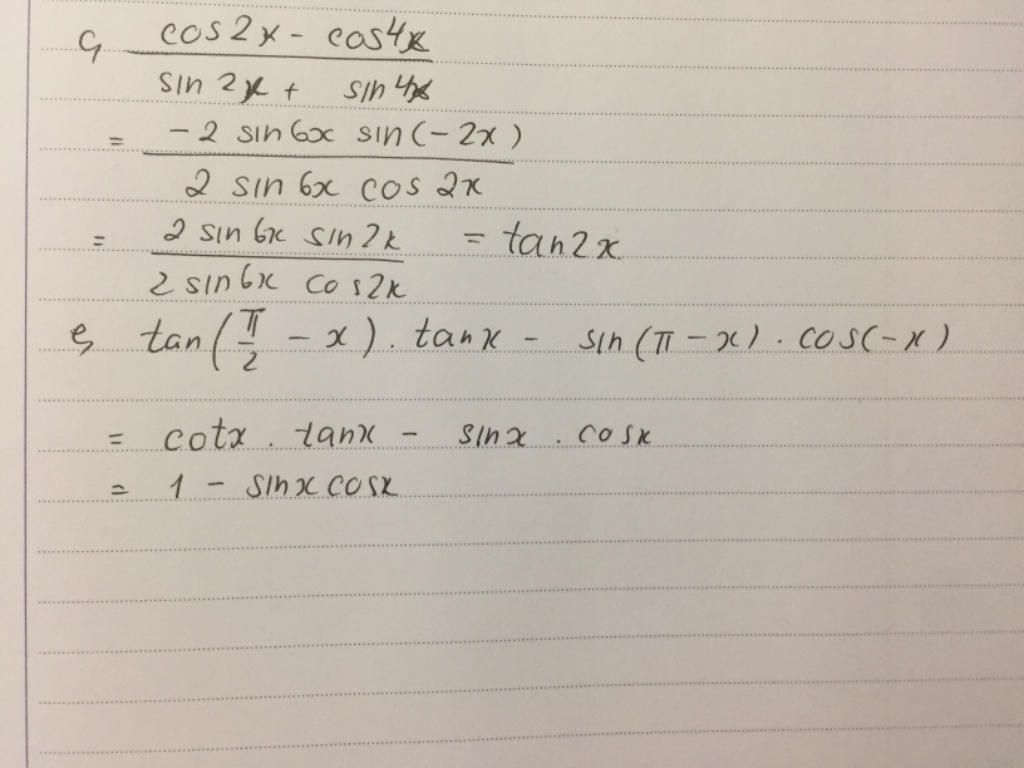 c, cos2x - cos4x
sin2x + sin4x
= -2 sin6x sin(-2x)
2 sin 6x cos 2x
= 2 sin6x sin2x = tan2x
2 sin6x cos2x
e, tan(π/2 - x) . tanx - sin(π - x) . cos(-x)
= cotx . tanx - sinx . cosx
= 1 - sinx cosx